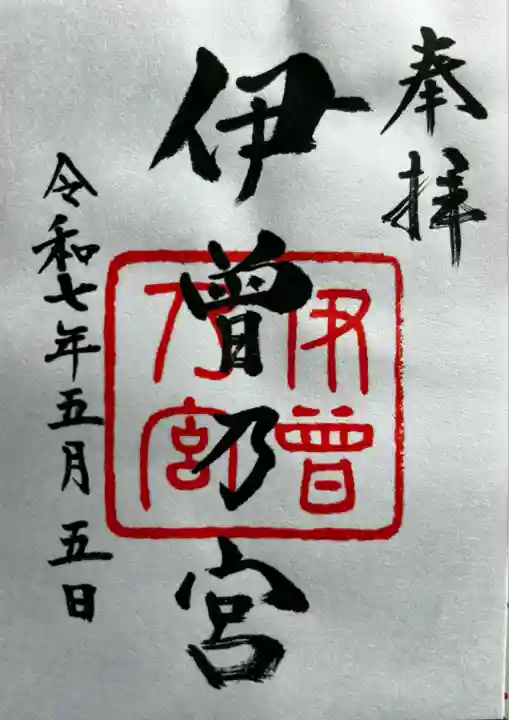 奉拝
伊曽乃宮
伊曽
乃宮
令和七年五月五日